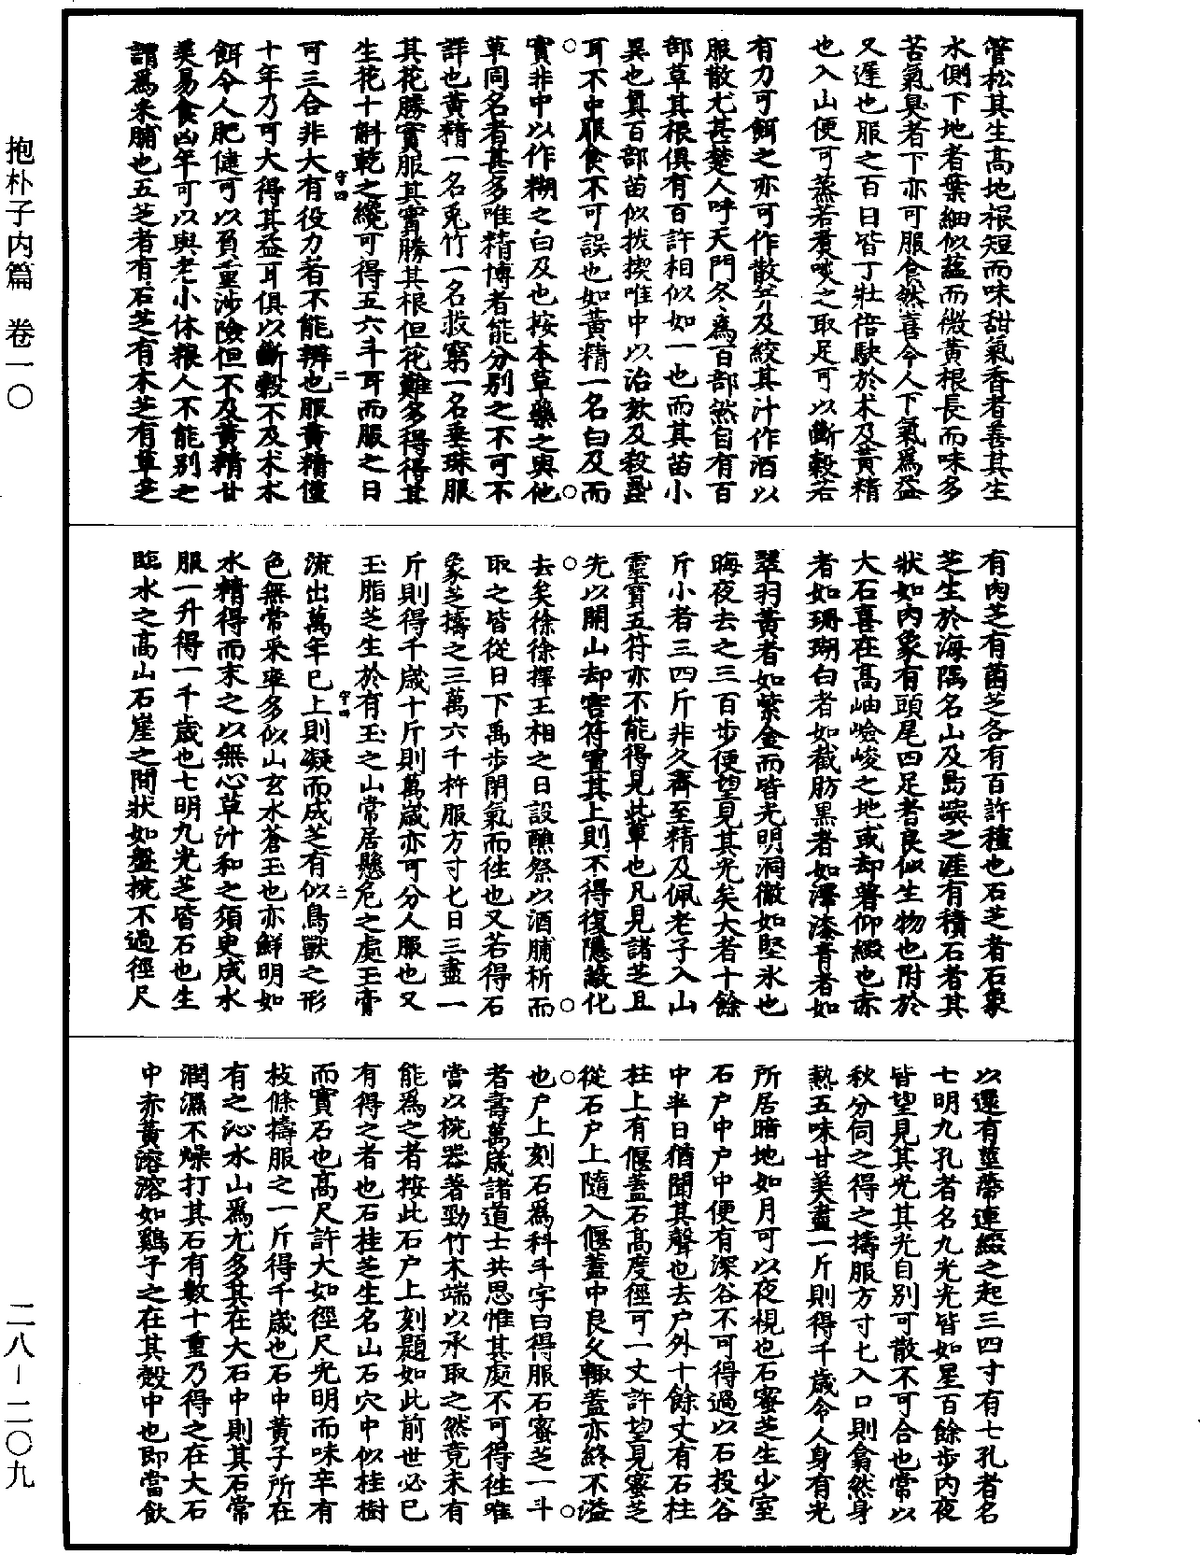 管松其生高地根短而味甜氣香者善其生
水側下地者葉細似蘊而微黃根長而味多
苦氣臭者下亦可服食然喜令人下氣爲益
又遲也服之百日皆丁壯倍駛於朮及黃精
也入山便可蒸若煑啖之取足可以斷榖若
有力可餌之亦可作散并及絞其汁作酒以
服散尤甚楚人呼天門冬爲百部然自有百
部草其根俱有百許相似如一也而其苗小
異也真百部苗似拔揳唯中以治欬及殺蝨
耳不中服食不可誤也如黃精一名白及而
實非中以作糊之白及也按本草藥之與他
草同名者甚多唯精博者能分别之不可不
詳也黃精一名兎竹一名救窮一名垂珠服
其花勝實服其實勝其根但花難多得得其
生花十斛乾之纔可得五六斗耳而服之日
可三合非大有役力者不能辨也服黃精僅
十年乃可大得其益耳俱以斷榖不及朮朮
餌令人肥健可以負重涉險但不及黃精甘
美易食凶年可以與老小休糧人不能别之
謂爲米脯也五芝者有石芝有木芝有草芝
有肉芝有菌芝各有百許種也石芝者石象
芝生於海隅名山及島嶼之涯有積石者其
狀如肉象有頭尾四足者良似生物也附於
大石喜在高岫嶮峻之地或却著仰綴也赤
者如珊瑚白者如截肪黑者如澤漆青者如
翠羽黃者如紫金而皆光明洞徹如堅氷也
晦夜去之三百步便望見其光矣大者十餘
斤小者三四斤非久齋至精及佩老子入山
靈寶五符亦不能得見此輩也凡見諸芝且
先以開山却害符置其上則不得復隱蔽化
去矣徐徐擇王相之日設醮祭以酒脯祈而
取之皆從日下禹步閉氣而徃也又若得石
象芝擣之三萬六千杵服方寸七日三盡一
斤則得千歲十斤則萬歲亦可分人服也又
玉脂芝生於有玉之山常居懸危之處玉膏
流出萬年已上則凝而成芝有似鳥獸之形
色無常采率多似山玄水蒼玉也亦鮮明如
水精得而末之以無心草汁和之須臾成水
服一升得一千歲也七明九光芝皆石也生
臨水之高山石崖之間狀如盤椀不過徑尺
以還有莖蔕連綴之起三四寸有七孔者名
七明九孔者名九光光皆如星百餘步內夜
皆望見其光其光自别可散不可合也常以
秋分伺之得之擣服方寸七入口則翕然身
熱五味甘美盡一斤則得千歲令人身有光
所居暗地如月可以夜視也石蜜芝生少室
石户中户中便有深谷不可得過以石投谷
中半日猶聞其聲也去户外十餘丈有石柱
柱上有偃蓋石高度徑可一丈許望見蜜芝
從石户上隨入偃蓋中良久輙蓋亦終不溢
也户上刻石爲科斗字曰得服石蜜芝一斗
者壽萬歲諸道士共思惟其處不可得徃唯
當以椀器著勁竹木端以承取之然竟未有
能爲之者按此石户上刻題如此前世必已
有得之者也石桂芝生名山石穴中似桂樹
而實石也高尺許大如徑尺光明而味辛有
枝條擣服之一斤得千歲也石中黃子所在
有之沁水山爲尤多其在大石中則其石常
潤濕不燥打其石有數十重乃得之在大石
中赤黃溶溶如鷄子之在其殼中也即當飲
抱朴子内篇 卷一〇
二八－二〇九